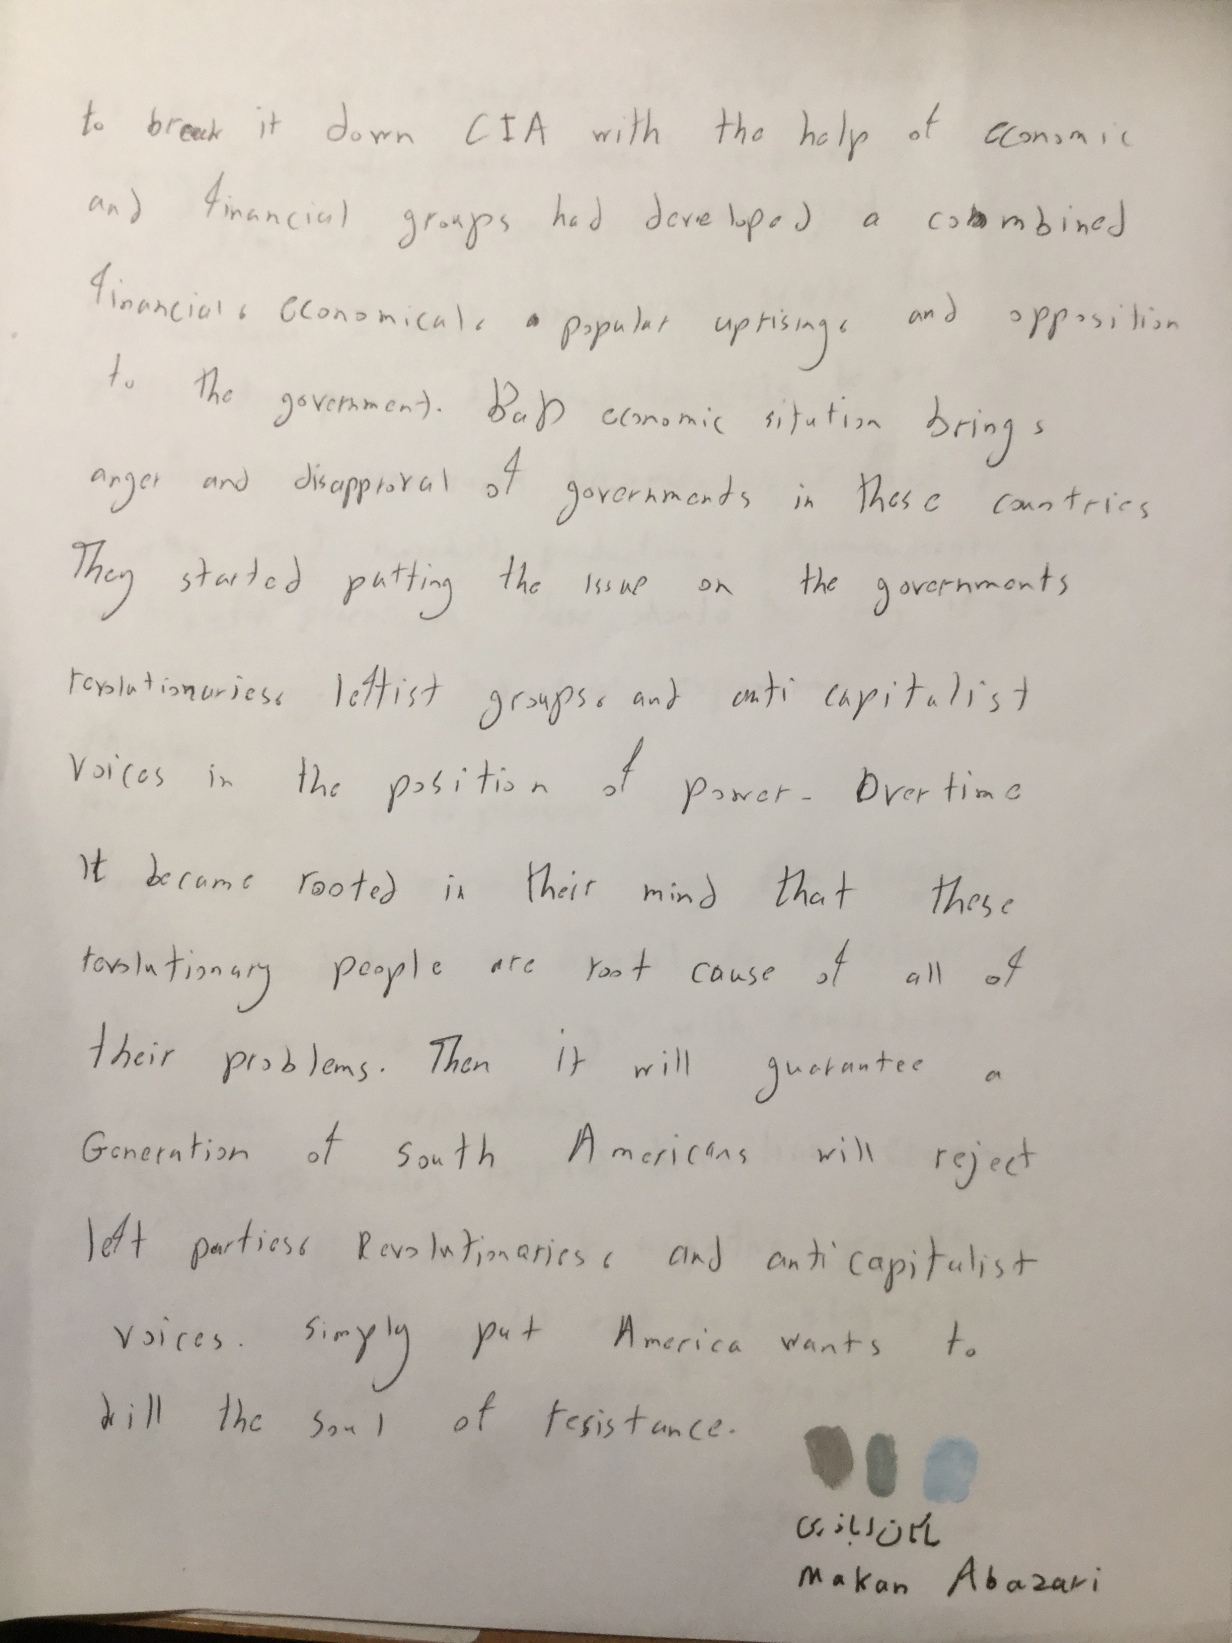 to break it down CIA with the help of economic
and financial groups had developed a combined
financial, economical, popular uprising, and opposition
to the government. Bad economic sitution brings
anger and disapproval of governments in these countries
They started putting the issue on the governments
revolutionaries, leftist groups, and anti capitalist
voices in the position of power. Over time
It became rooted in their mind that these
revolutionary people are root cause of all of
their problems. Then it will guarantee a
Generation of south Americans will reject
left parties, Revolutionaries, and anti capitalist
voices. simply put America wants to
kill the soul of resistance.
ماکان اباذری
Makan Abazari